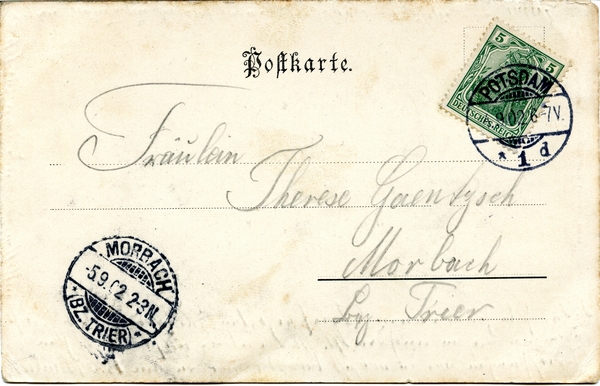 Postkarte.
5 5
DEUTSCHES REICH
POTSDAM
02.6-7V.
* 1 d
Fräulein
Therese Gaentzsch
Morbach
Bz. Trier
MORBACH
5.9.02 2-3N.
*(BZ. TRIER)*